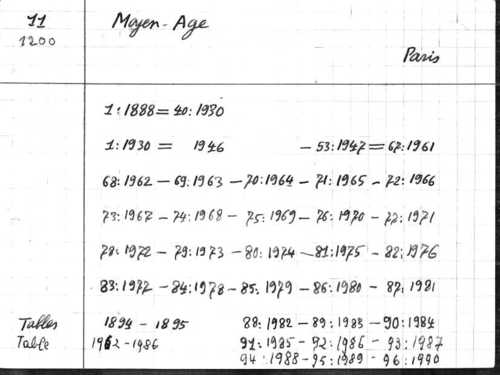 11
1200
Moyen-Age
Paris
1:1888 = 40:1930
1:1930 = 1946 - 53:1947 = 67:1961
68:1962 - 69:1963 - 70:1964 - 71:1965 - 72:1966
73:1967 - 74:1968 - 75:1969 - 76:1970 - 77:1971
78:1972 - 79:1973 - 80:1974 - 81:1975 - 82:1976
83:1977 - 84:1978 - 85:1979 - 86:1980 - 87:1981
Tables 1894 - 1895 88:1982 - 89:1983 - 90:1984
Table 1962 - 1986 91:1985 - 92:1986 - 93:1987
94:1988 - 95:1989 - 96:1990